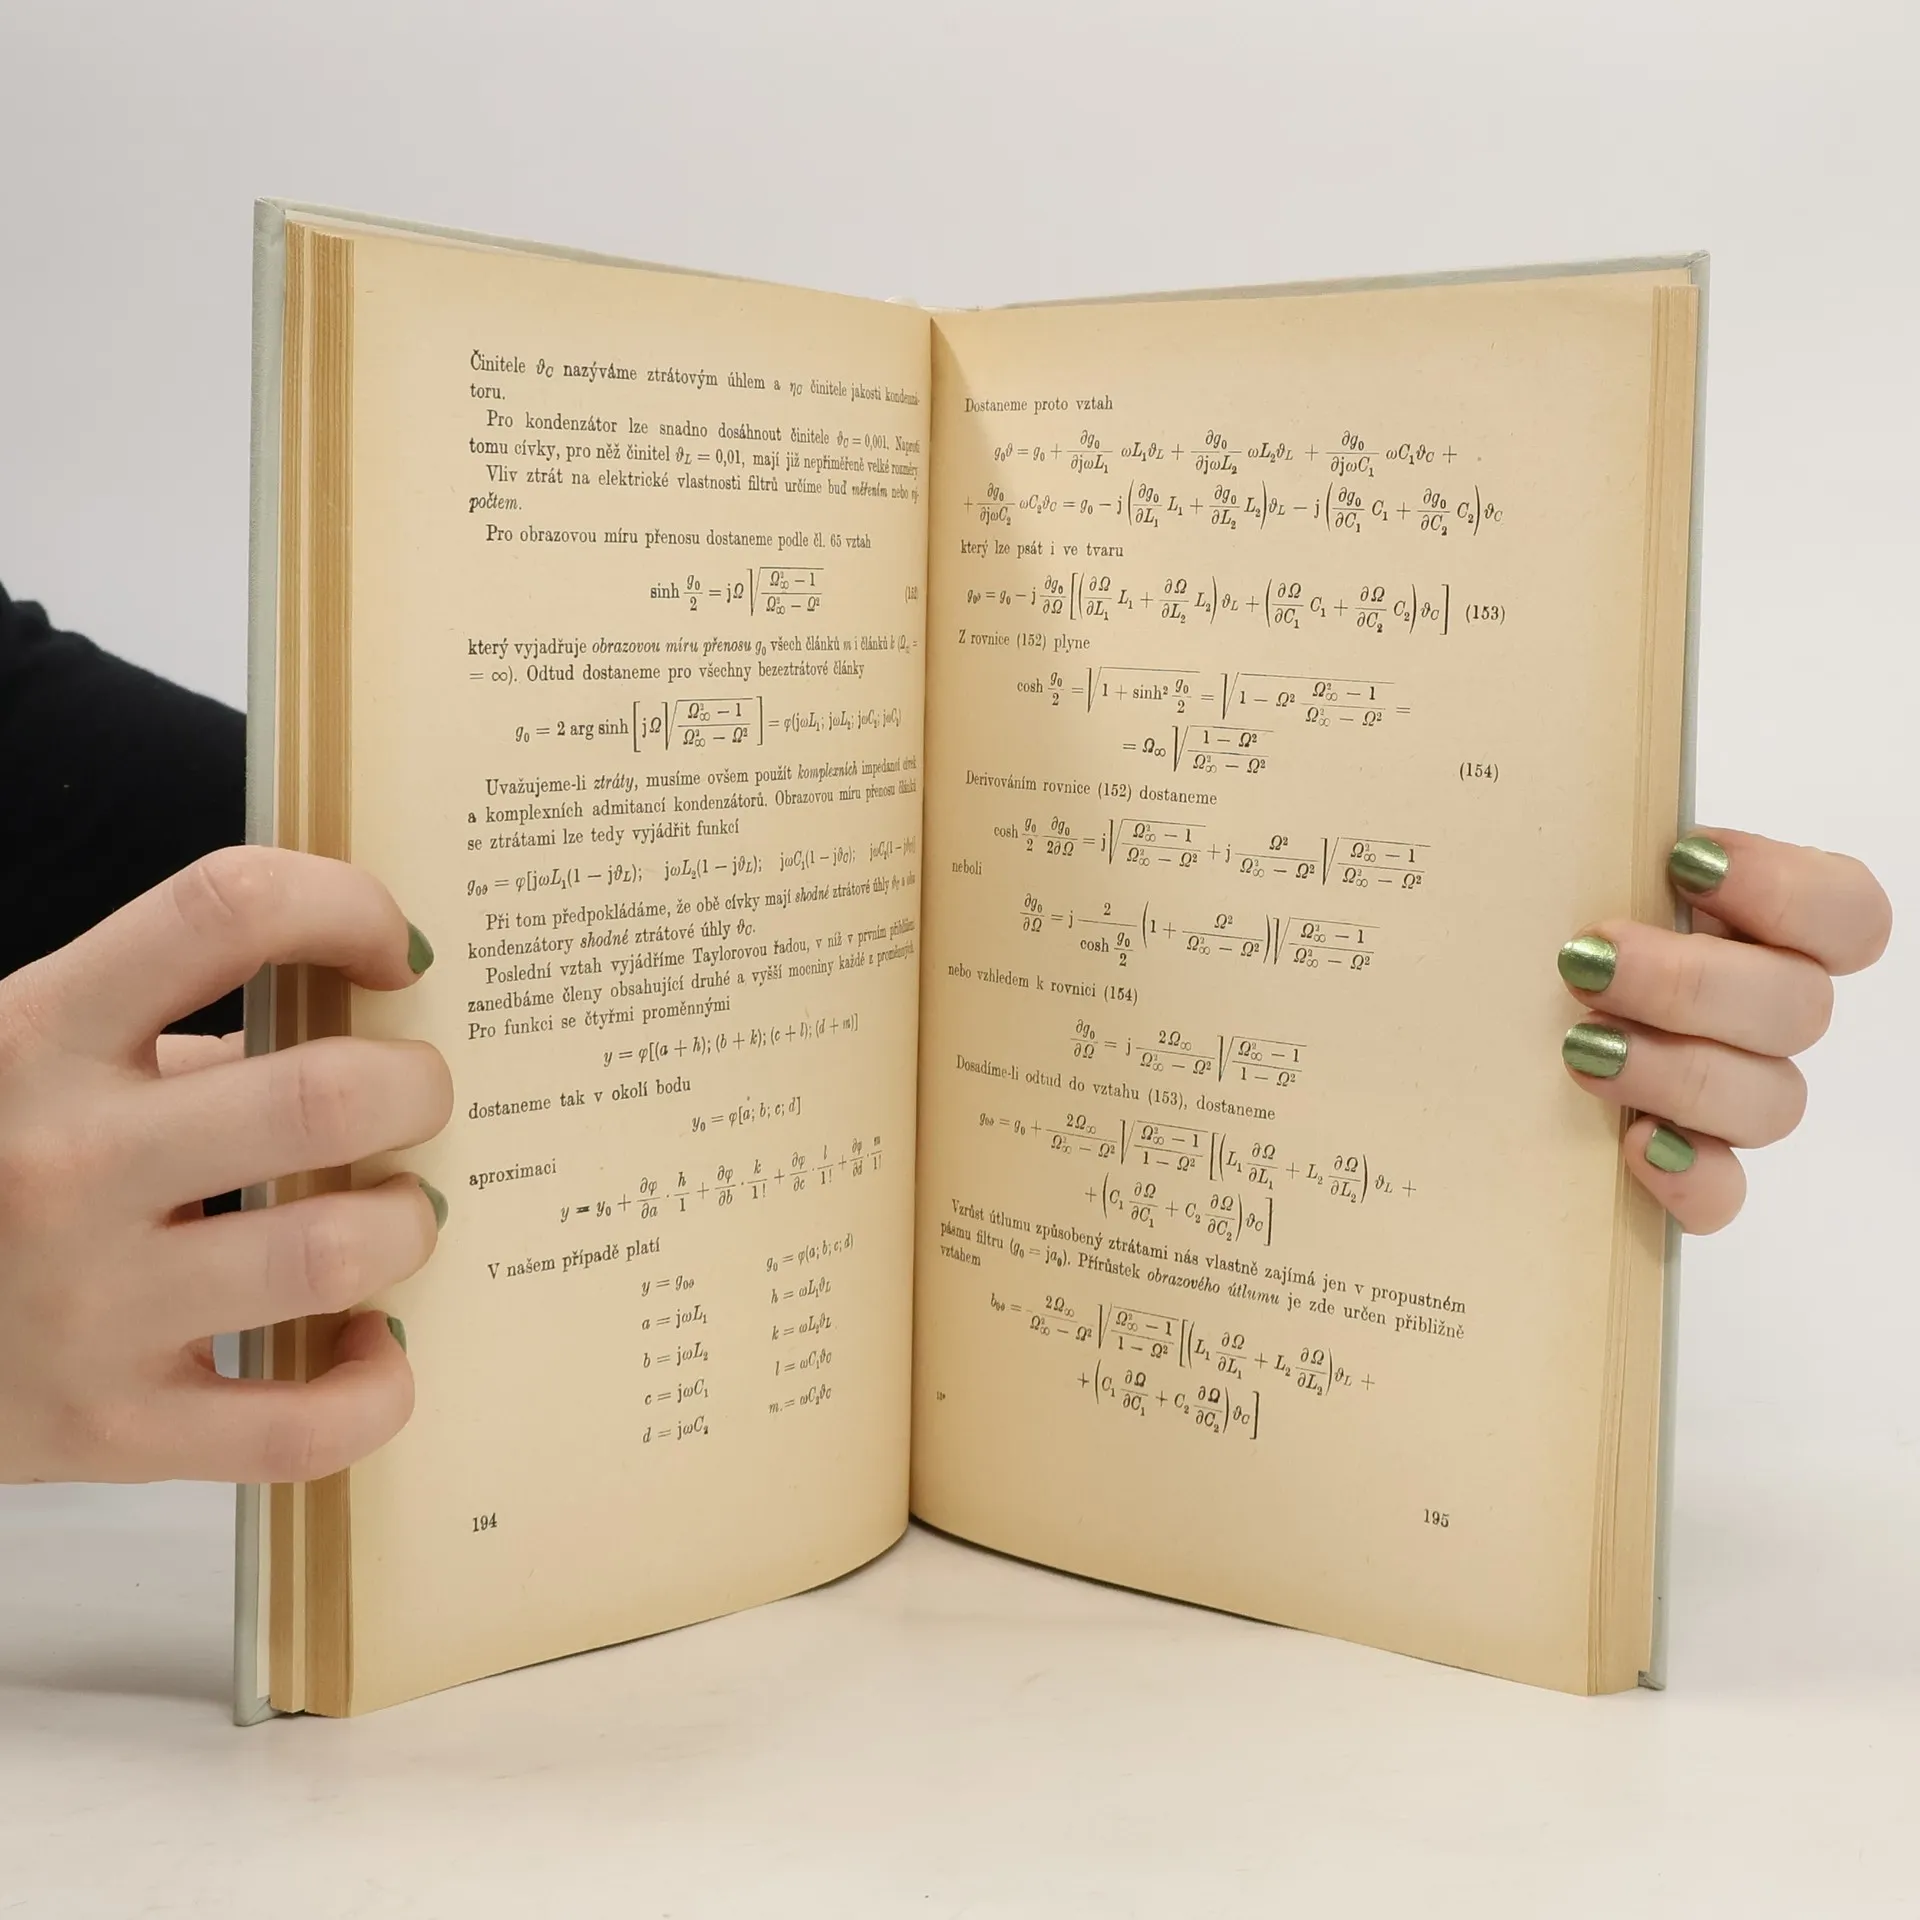 Činitele ϑ_C nazýváme ztrátovým úhlem a η_C činitele jakosti kondenzá-
toru.
Pro kondenzátor lze snadno dosáhnout činitele ϑ_C = 0,001. Naproti
tomu cívky, pro něž činitel ϑ_L = 0,01, mají již nepřiměřeně velké rozměry.
Vliv ztrát na elektrické vlastnosti filtrů určíme buď měřením nebo vý-
počtem.
Pro obrazovou míru přenosu dostaneme podle čl. 65 vztah
sinh g₀/2 = jΩ √((Ω²_∞ − 1)/(Ω²_∞ − Ω²)) (152)
který vyjadřuje obrazovou míru přenosu g₀ všech článků m i článků k (Ω_∞ =
= ∞). Odtud dostaneme pro všechny bezeztrátové články
g₀ = 2 arg sinh [jΩ √((Ω²_∞ − 1)/(Ω²_∞ − Ω²))] = φ(jωL₁; jωL₂; jωC₁; jωC₂)
Uvažujeme-li ztráty, musíme ovšem použít komplexních impedancí cívek
a komplexních admitancí kondenzátorů. Obrazovou míru přenosu článků
se ztrátami lze tedy vyjádřit funkcí
g₀ϑ = φ[jωL₁(1 − jϑ_L); jωL₂(1 − jϑ_L); jωC₁(1 − jϑ_C); jωC₂(1 − jϑ_C)]
Při tom předpokládáme, že obě cívky mají shodné ztrátové úhly ϑ_L a oba
kondenzátory shodné ztrátové úhly ϑ_C.
Poslední vztah vyjádříme Taylorovou řadou, v níž v prvním přiblížení
zanedbáme členy obsahující druhé a vyšší mocniny každé z proměnných
Pro funkci se čtyřmi proměnnými
y = φ[(a + h); (b + k); (c + l); (d + m)]
dostaneme tak v okolí bodu
y₀ = φ[a; b; c; d]
aproximaci
y = y₀ + ∂φ/∂a · h/1 + ∂φ/∂b · k/1! + ∂φ/∂c · l/1! + ∂φ/∂d · m/1!
V našem případě platí
y = g₀ϑ g₀ = φ(a; b; c; d)
a = jωL₁ h = ωL₁ϑ_L
b = jωL₂ k = ωL₂ϑ_L
c = jωC₁ l = ωC₁ϑ_C
d = jωC₂ m = ωC₂ϑ_C
194
Dostaneme proto vztah
g₀ϑ = g₀ + ∂g₀/∂jωL₁ ωL₁ϑ_L + ∂g₀/∂jωL₂ ωL₂ϑ_L + ∂g₀/∂jωC₁ ωC₁ϑ_C +
+ ∂g₀/∂jωC₂ ωC₂ϑ_C = g₀ − j (∂g₀/∂L₁ L₁ + ∂g₀/∂L₂ L₂) ϑ_L − j (∂g₀/∂C₁ C₁ + ∂g₀/∂C₂ C₂) ϑ_C
který lze psát i ve tvaru
g₀ϑ = g₀ − j ∂g₀/∂Ω [(∂Ω/∂L₁ L₁ + ∂Ω/∂L₂ L₂) ϑ_L + (∂Ω/∂C₁ C₁ + ∂Ω/∂C₂ C₂) ϑ_C] (153)
Z rovnice (152) plyne
cosh g₀/2 = √(1 + sinh² g₀/2) = √(1 − Ω² (Ω²_∞ − 1)/(Ω²_∞ − Ω²)) =
= Ω_∞ √((1 − Ω²)/(Ω²_∞ − Ω²)) (154)
Derivováním rovnice (152) dostaneme
cosh g₀/2 ∂g₀/2∂Ω = j √((Ω²_∞ − 1)/(Ω²_∞ − Ω²)) + j Ω²/(Ω²_∞ − Ω²) √((Ω²_∞ − 1)/(Ω²_∞ − Ω²))
neboli
∂g₀/∂Ω = j 2/(cosh g₀/2) (1 + Ω²/(Ω²_∞ − Ω²)) √((Ω²_∞ − 1)/(Ω²_∞ − Ω²))
nebo vzhledem k rovnici (154)
∂g₀/∂Ω = j 2Ω_∞/(Ω²_∞ − Ω²) √((Ω²_∞ − 1)/(1 − Ω²))
Dosadíme-li odtud do vztahu (153), dostaneme
g₀ϑ = g₀ + 2Ω_∞/(Ω²_∞ − Ω²) √((Ω²_∞ − 1)/(1 − Ω²)) [(L₁ ∂Ω/∂L₁ + L₂ ∂Ω/∂L₂) ϑ_L +
+ (C₁ ∂Ω/∂C₁ + C₂ ∂Ω/∂C₂) ϑ_C]
Vzrůst útlumu způsobený ztrátami nás vlastně zajímá jen v propustném
pásmu filtru (g₀ = ja₀). Přírůstek obrazového útlumu je zde určen přibližně
vztahem
b₀ϑ = 2Ω_∞/(Ω²_∞ − Ω²) √((Ω²_∞ − 1)/(1 − Ω²)) [(L₁ ∂Ω/∂L₁ + L₂ ∂Ω/∂L₂) ϑ_L +
+ (C₁ ∂Ω/∂C₁ + C₂ ∂Ω/∂C₂) ϑ_C]
195